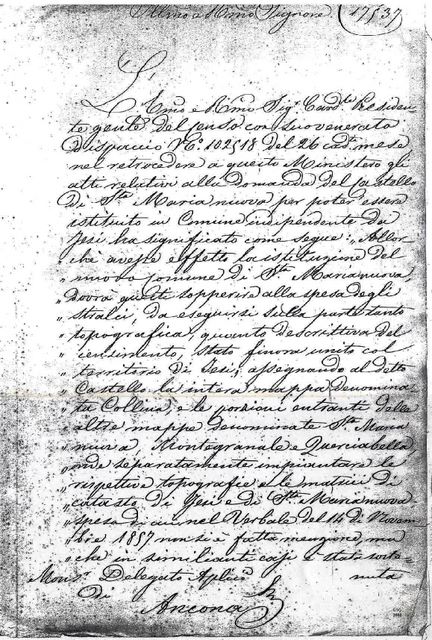 Illmo e Rmo Signore
17537
L'Emo e Rmo Sigr Cardle Presiden-
te gentle del Censo con suo venerato
Dispaccio No 102518 del 26 cade mese
nel retrocedere a questo Ministero gli
atti relativi alla domanda del Castello
di Sta Marianuova per poter essere
istituito in Comune indipendente da
Jesi ha significato come segue: „Allor-
„ chè avesse effetto la istituzione del
„ nuovo Comune di Sta Marianuova
„ dovrà questi sopperire alla spesa degli
„ stralci, da eseguirsi sulla parte tanto
„ topografica, quanto descrittiva del
„ censimento, stato finora unito col
„ territorio di Jesi, assegnando al detto
„ Castello la intera mappa denomina-
„ ta Collina, e le porzioni entrante delle
„ altre mappe denominate Sta Maria
„ nuova, Montegranale e Querciabella,
„ onde separatamente impiantare le
„ rispettive topografie e le matrici di
„ catasto di Jesi e di Sta Marianuova
„ spesa di cui nel Verbale del 14 di Novem-
„ bre 1857 non si è fatta menzione, ma
„ che in simili casi è stata soste-
Monsr Delegato Aplico nuta
di
Ancona